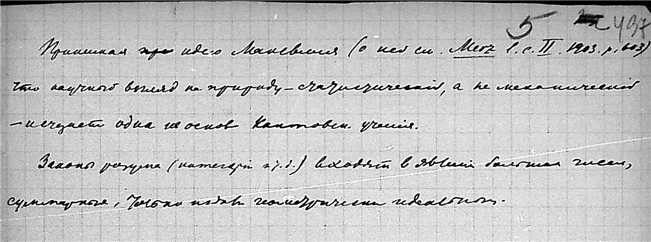 5 497
Принимая идею Максвелля (о ней см. Merz l. c. II. 1903. p. 603)
что научный взгляд на природу – статистический, а не механический
– исчезает одна из основ Кантовск. учения.
Законы разума (категории и т. д.) входят в явления больших чисел,
суммарные, только